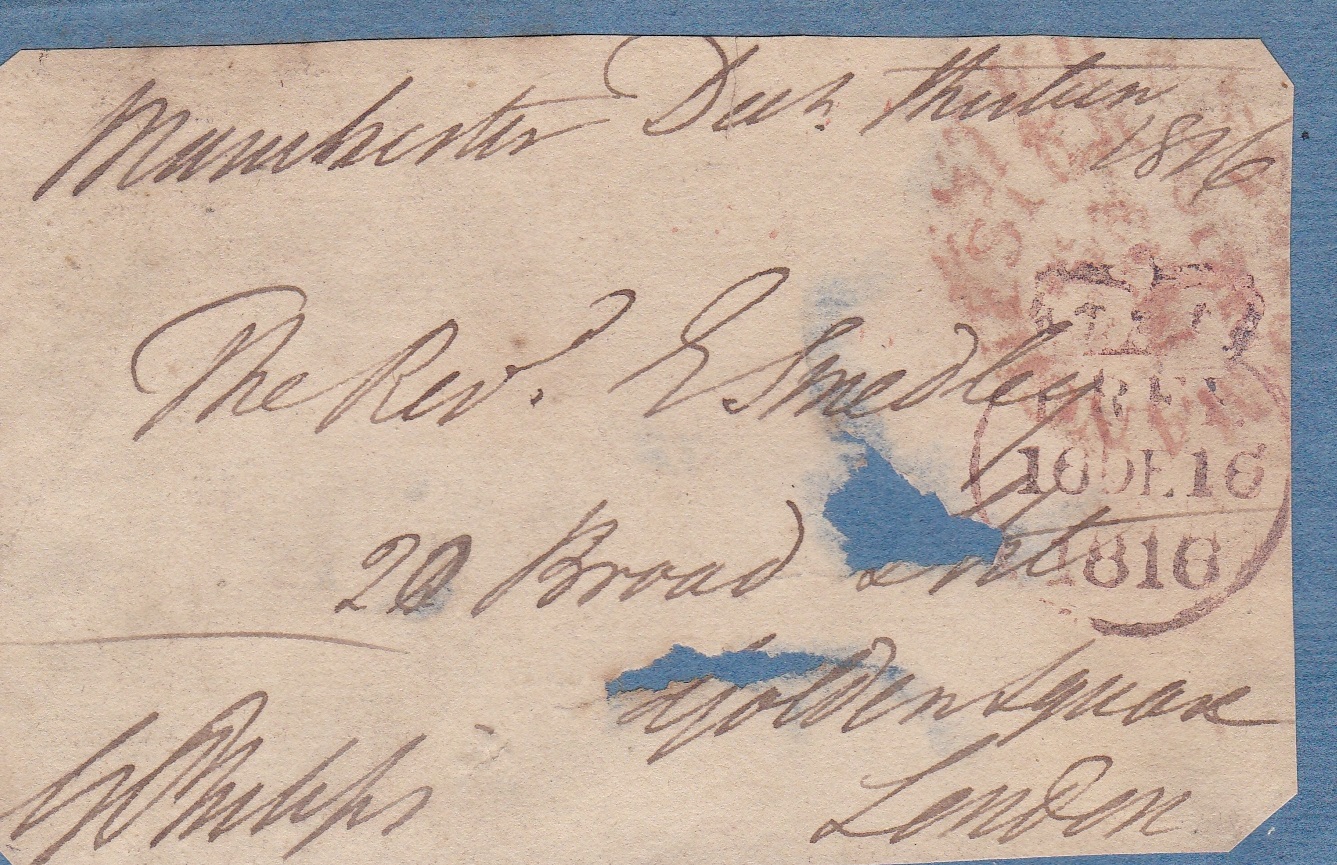 Manchester Decr. thirteen
1816
The Revd. E Smedley
FREE
16 DE 16
1816
20 Broad Strt
Golden Square
London
G Philips